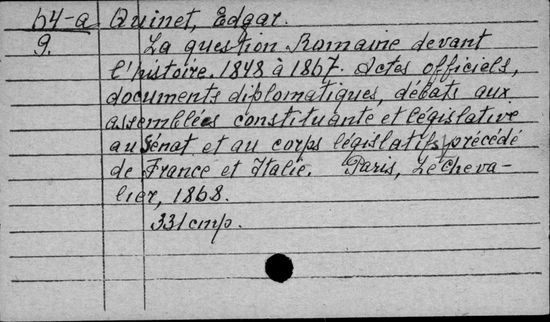 64-a Quinet, Edgar.
9. La question Romaine devant
l'histoire. 1848 à 1867. Actes officiels,
documents diplomatiques, débats aux
assemblées constituante et législative
au Sénat et au corps législatifs, précédé
de France et Italie. Paris, Lecheva-
lier, 1868.
331 cmp.